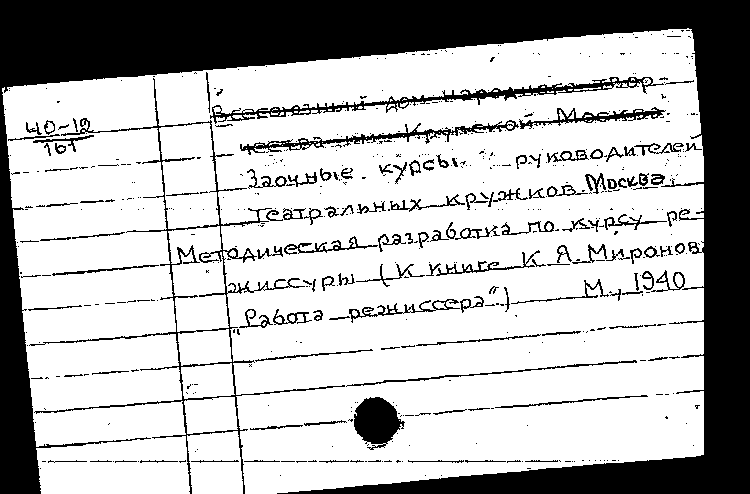 40-12
161
Всесоюзный дом народного твор-
чества им. Крупской Москва
Заочные курсы руководителей
театральных кружков. Москва.
Методическая разработка по курсу ре-
жиссуры (К книге К. Я. Миронова
„Работа режиссера“) М., 1940